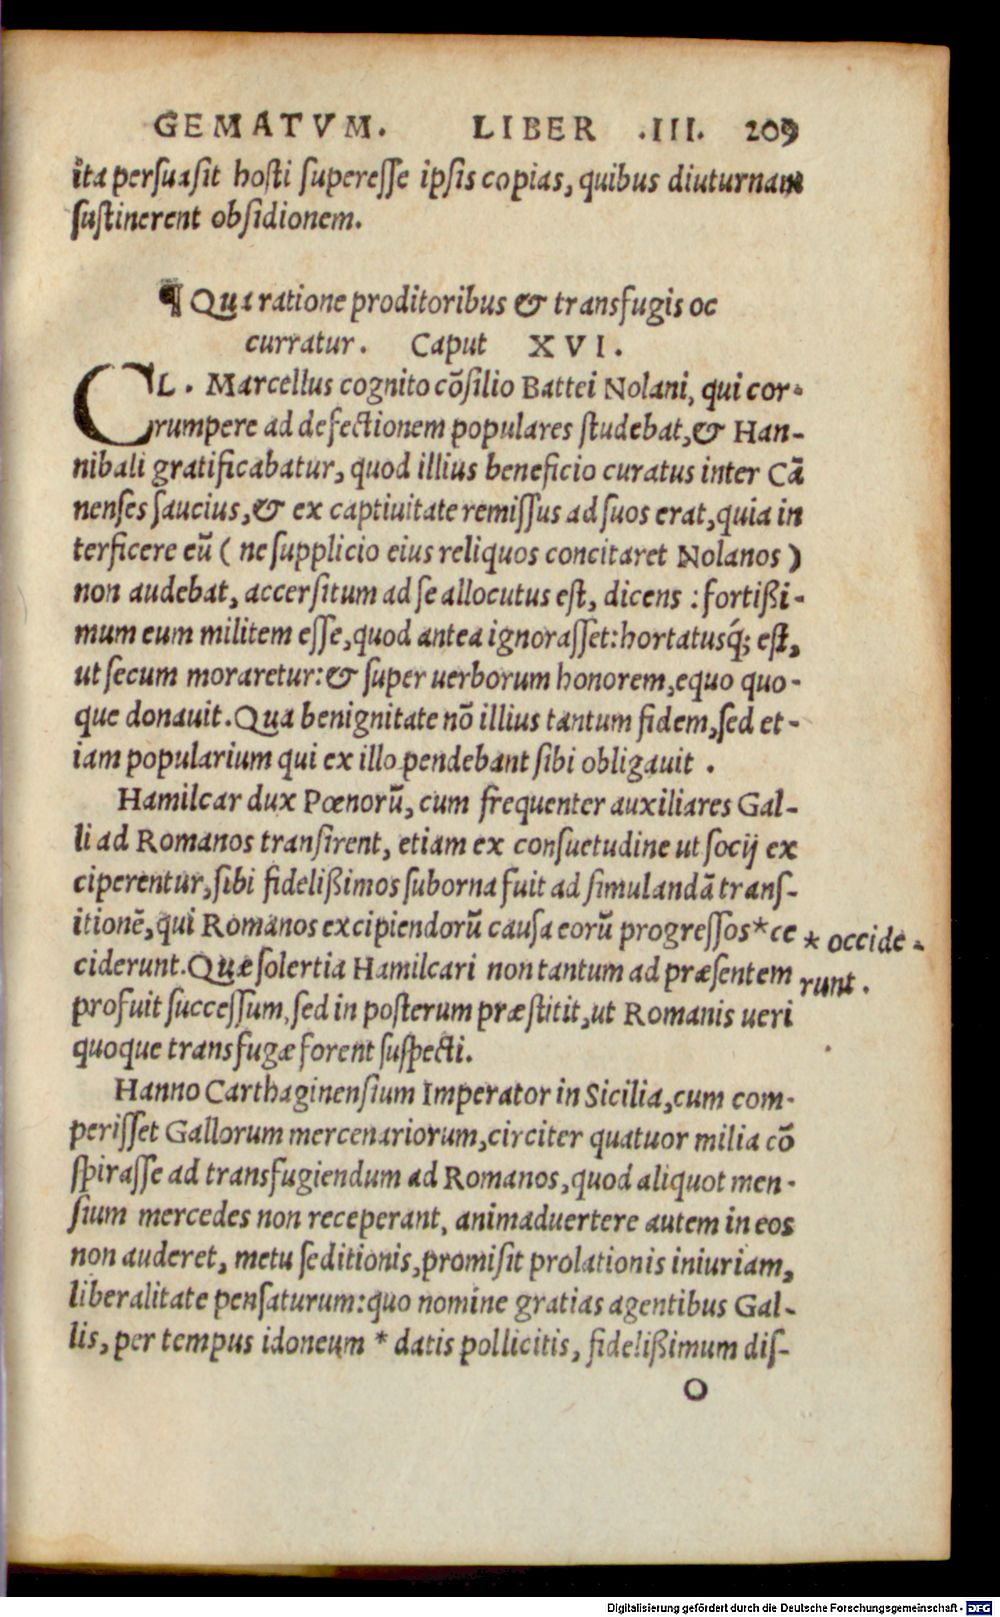 GEMATVM. LIBER .III. 209
ita persuasit hosti superesse ipsis copias, quibus diuturnam
sustinerent obsidionem.
¶ Qua ratione proditoribus & transfugis oc
curratur. Caput XVI.
CL. Marcellus cognito cõsilio Battei Nolani, qui cor-
rumpere ad defectionem populares studebat, & Han-
nibali gratificabatur, quod illius beneficio curatus inter Cã
nenses saucius, & ex captiuitate remissus ad suos erat, quia in
terficere eũ ( ne supplicio eius reliquos concitaret Nolanos )
non audebat, accersitum ad se allocutus est, dicens : fortißi-
mum eum militem esse, quod antea ignorasset: hortatusq́; est,
ut secum moraretur: & super uerborum honorem, equo quo-
que donauit. Qua benignitate nõ illius tantum fidem, sed et-
iam popularium qui ex illo pendebant sibi obligauit .
Hamilcar dux Pœnorũ, cum frequenter auxiliares Gal-
li ad Romanos transirent, etiam ex consuetudine ut socij ex
ciperentur, sibi fidelißimos suborna fuit ad simulandã trans-
itionẽ, qui Romanos excipiendorũ causa eorũ progressos * ce
ciderunt. Quæ solertia Hamilcari non tantum ad præsentem
profuit successum, sed in posterum præstitit, ut Romanis ueri
quoque transfugæ forent suspecti.
* occide-
runt.
Hanno Carthaginensium Imperator in Sicilia, cum com-
perisset Gallorum mercenariorum, circiter quatuor milia cõ
spirasse ad transfugiendum ad Romanos, quod aliquot men-
sium mercedes non receperant, animaduertere autem in eos
non auderet, metu seditionis, promisit prolationis iniuriam,
liberalitate pensaturum: quo nomine gratias agentibus Gal-
lis, per tempus idoneum * datis pollicitis, fidelißimum dis-
O
Digitalisierung gefördert durch die Deutsche Forschungsgemeinschaft - DFG